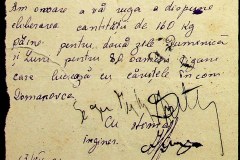 Am onoare a vă ruga a dispune
eliberarea cantității de 160 Kg
pâine pentru două zile Duminică
și Luni pentru 80 oameni țigani
care lucrează cu căruțele în com
Domanovca
Cu stima
Inginer